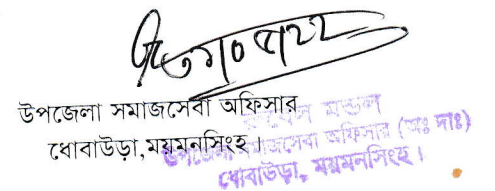 উপজেলা সমাজসেবা অফিসার
ধোবাউড়া,ময়মনসিংহ।
মন্ডল
উপজেলা সমাজসেবা অফিসার (অঃ দাঃ)
ধোবাউড়া, ময়মনসিংহ।